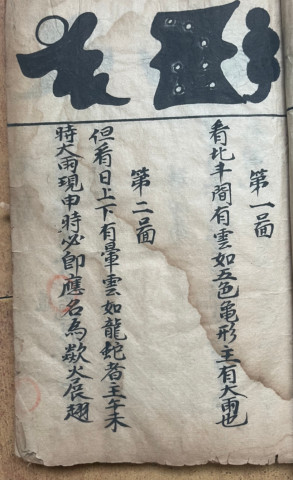 第一图
看北斗間有雲如五色龜形主有大雨也
第二图
但看日上下有暈雲如龍蛇者主午未
時大雨現申時必即應名為歘火展翅